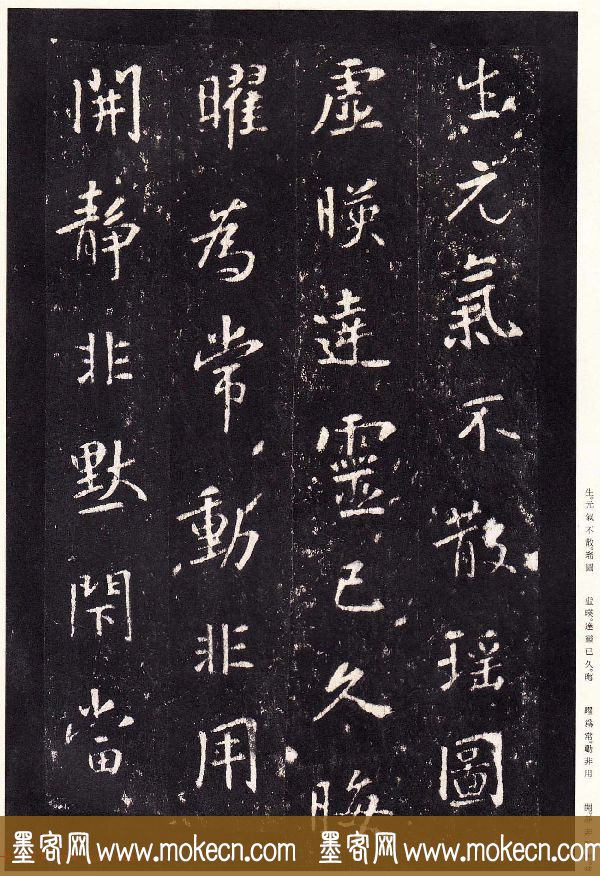 生元氣不散瑶圖
虛暎達靈已久晦
曜為常動非用
開靜非默閇當
生。元氣不散。瑤圖
虛暎。達靈已久。晦
曜爲常。動非用
開。
墨客网 www.mokecn.com 墨客网 www.mokecn.com